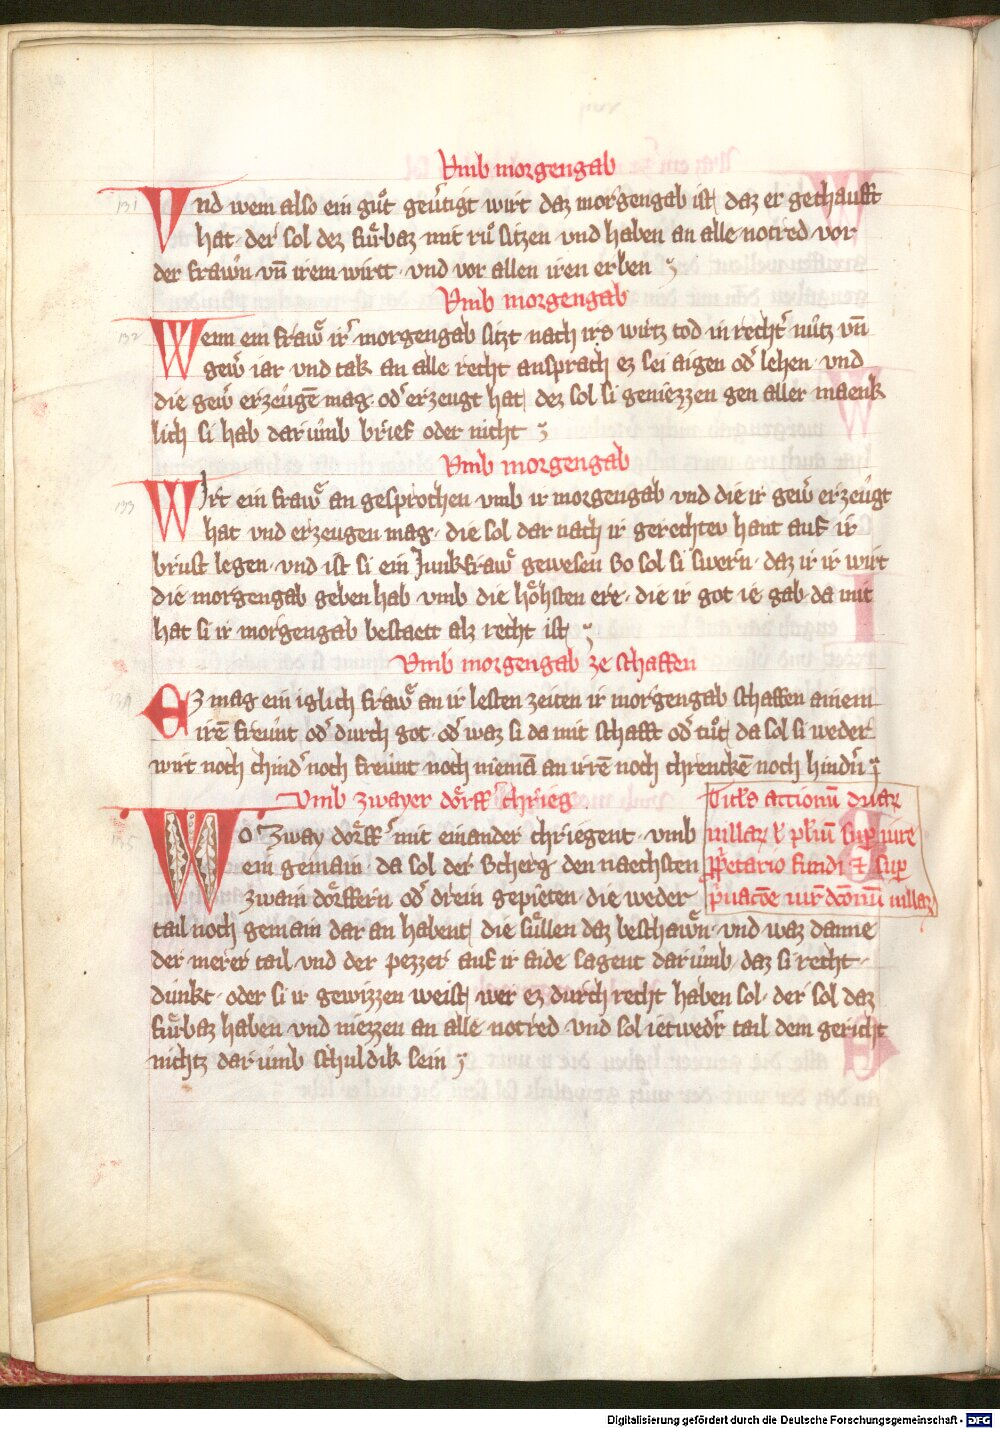 Vmb morgengab
131 Vnd wem also ein guͦt geuͤtigt wirt daz morgengab ist daz er gechaufft
hat · der sol dez fuͤrbaz mit ruͦ sitzen vnd haben an alle notred vor
der frawn vn̄ irem wirtt · vnd vor allen iren erben
Vmb morgengab
132 Wenn ein fraw ir morgengab sitzt nach irs wirtz tod in recht̾ nutz vn̄
gew̾ iar vnd tak an alle recht ansprach ez sei aigen od̾ lehen · vnd
die gew̾ erzeugē mag · od̾ erzeugt hat dez sol si geniezzen gen aller maenk
lich si hab darumb brief oder nicht
Vmb morgengab
133 Wirt ein fraw an gesprochen vmb ir morgengab vnd die ir gew̾ erzeugt
hat vnd erzeugen mag · die sol dar nach ir gerechtev hant auf ir
brust legen · vnd ist si ein Junkfraw gewesen So sol si swern · daz ir ir wirt
die morgengab geben hab · vmb die hoͤhsten ere · die ir got ie gab · da mit
hat si ir morgengab bestaett alz recht ist
Vmb morgengab ze schaffen
134 Ez mag ein iglich fraw an ir lesten zeiten ir morgengab schaffen ainem
irē freunt od̾ durch got · od̾ waz si da mit schafft od̾ tuͦt da sol si weder
wirt noch chind̾ noch freunt noch niemā an irrē noch chrenckē noch hindn̾
Vmb zwayer doͤrff chrieg
135 Wo Zway doͤrff mit einander chriegent · vmb
ein gemain da sol der Scherg den naechsten
zwain doͤrffern od̾ drein gepieten · die weder
Titl's actionū duaꝝ
villaꝝ
fundi et sup̾
villaꝝ
tail noch gemain dar an habent die suͤllen daz beschawn · vnd waz danne
der merer tail vnd der pezzer auf ir aide sagent darumb · daz si recht
dunkt · oder si ir gewizzen weist wer ez durch recht haben sol · der sol daz
fuͤrbaz haben vnd niezzen an alle notred vnd sol ietwedr̾ tail dem gericht
nichtz darumb schuldik sein
Digitalisierung gefördert durch die Deutsche Forschungsgemeinschaft - DFG